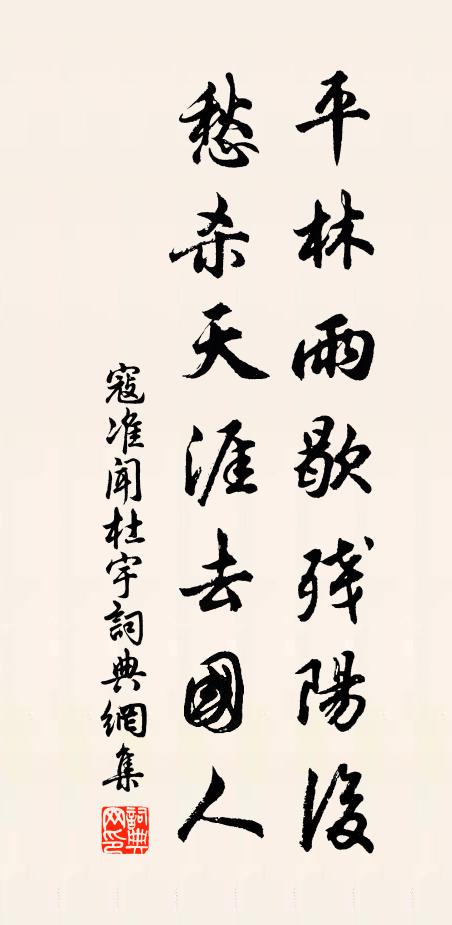 平林雨歇残陽後
愁杀天涯去國人
寇准闻杜宇詞典網集
詞典网印